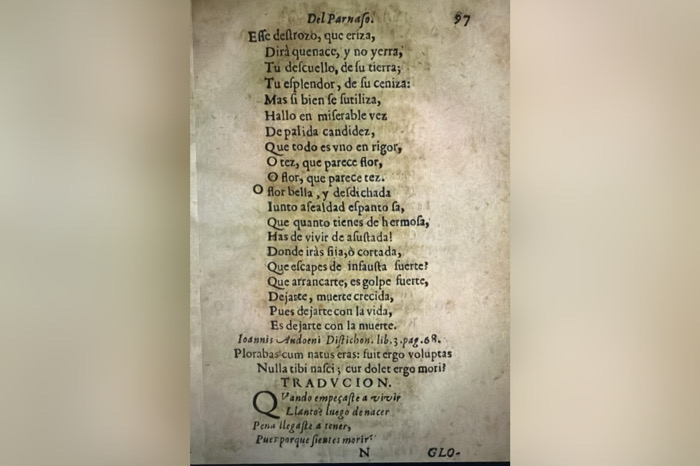 Del Parnaſo. 97
Eſſe deſtrozo, que eriza,
Dirà quenace, y no yerra,
Tu deſcuello, de ſu tierra;
Tu eſplendor, de ſu ceniza:
Mas ſi bien ſe ſutiliza,
Hallo en miſerable vez
De palida candidez,
Que todo es vno en rigor,
O tez, que parece flor,
O flor, que parece tez.
O flor bella, y deſdichada
Iunto aſealdad eſpanto ſa,
Que quanto tienes de hermoſa,
Has de vivir de aſuſtada!
Donde iràs fiia, ò cortada,
Que eſcapes de infauſta ſuerte?
Que arrancarte, es golpe fuerte,
Dejarte, muerte crecida,
Pues dejarte con la vida,
Es dejarte con la muerte.
Ioannis Audoeni Diſtichon. lib. 3. pag. 68.
Plorabas cum natus eras: fuit ergo voluptas
Nulla tibi naſci; cur dolet ergo mori?
TRADVCION.
QVando empeçaſte a vivir
Llanto è luego de nacer
Pena llegaſte a tener,
Pues porque ſientes morir?
N GLO-